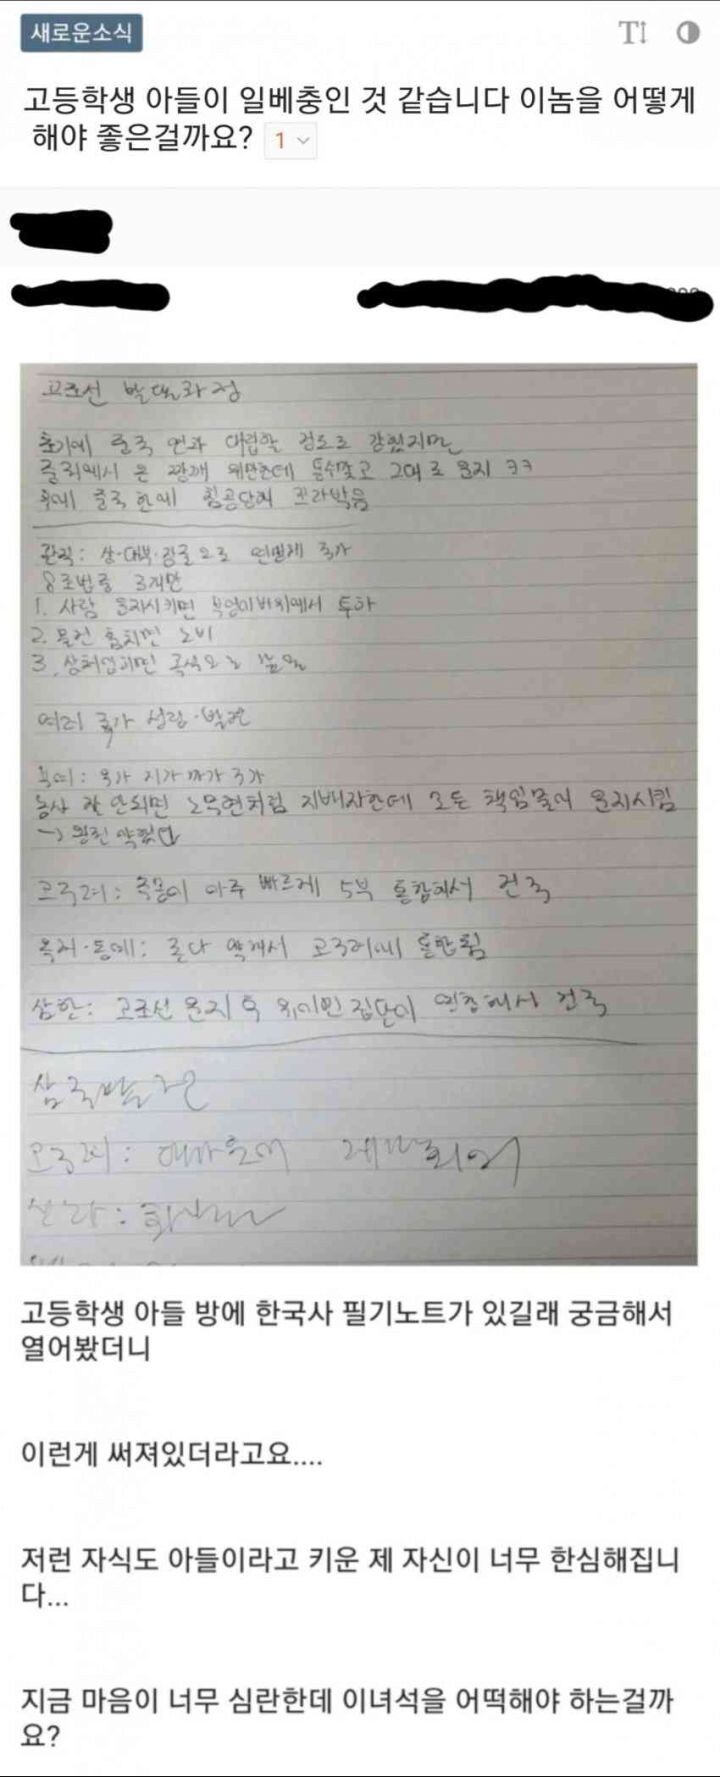 새로운소식
고등학생 아들이 일베충인 것 같습니다 이놈을 어떻게
해야 좋은걸까요? 1
고조선 발달과정
초기에 중국 연과 대립할 정도로 강했지만
중국에서 온 짱깨 위만한테 통수맞고 그대로 운지 ㅋㅋ
후에 중국 한에 침공당해 꼬라박음
관직: 상·대부·장군으로 연맹체 국가
8조법중 3개만
1. 사람 운지시키면 부엉이바위에서 투하
2. 물건 훔치면 노비
3. 상처입히면 곡식으로
여러 국가 성립·발전
부여: 우가 저가 마가 구가
농사 잘 안되면 노무현처럼 지배자한테 모든 책임물어 운지시킴
→ 왕권 약했다
고구려: 주몽이 아주 빠르게 5부 통합해서 건국
옥저·동예: 둘다 약해서 고구려에 통합됨
삼한: 고조선 운지 후 유이민 집단이 연합해서 건국
삼국발전
고구려:
신라:
고등학생 아들 방에 한국사 필기노트가 있길래 궁금해서
열어봤더니
이런게 써져있더라고요....
저런 자식도 아들이라고 키운 제 자신이 너무 한심해집니
다...
지금 마음이 너무 심란한데 이녀석을 어떡해야 하는걸까
요?